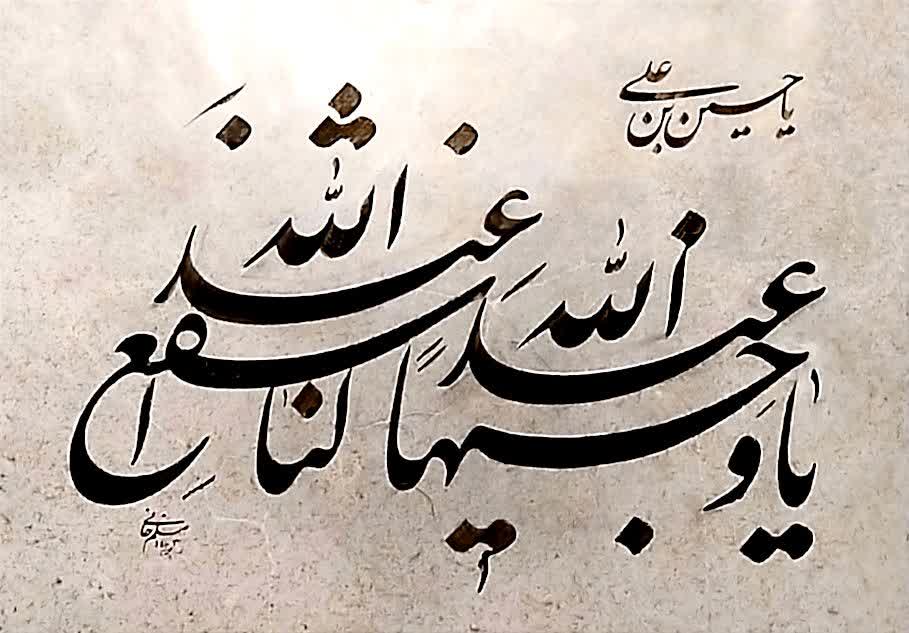 یا حسین بن علی
یا وَجیهاً عِندَ الله اِشفَع لَنا عِندَ الله